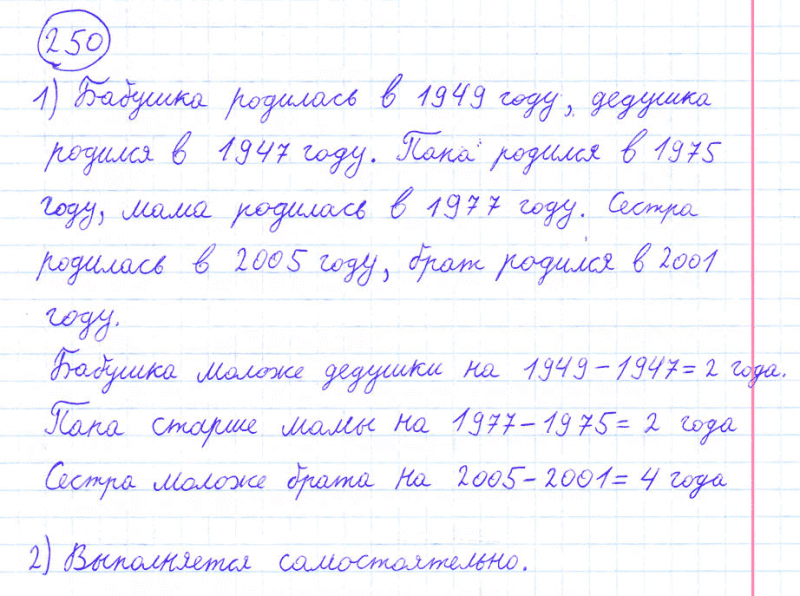 250
1) Бабушка родилась в 1949 году, дедушка
родился в 1947 году. Папа родился в 1975
году, мама родилась в 1977 году. Сестра
родилась в 2005 году, брат родился в 2001
году.
Бабушка моложе дедушки на 1949-1947=2 года.
Папа старше мамы на 1977-1975=2 года
Сестра моложе брата на 2005-2001=4 года
2) Выполняется самостоятельно.